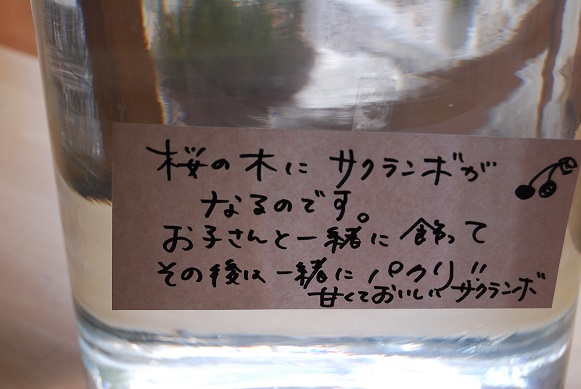 桜の木に サクランボが
なるのです。
お子さんと一緒に 飾って
その後は 一緒に パクリ!!
甘くておいしい サクランボ